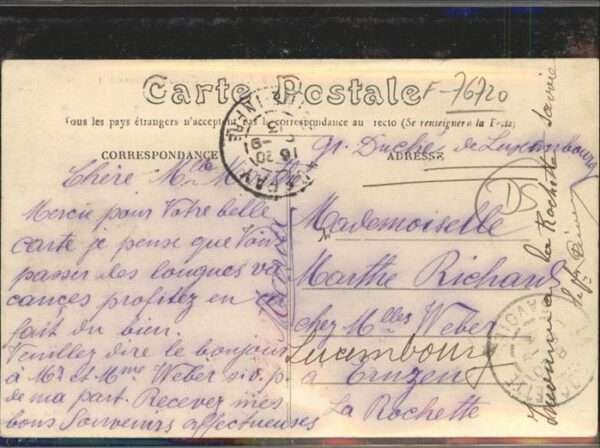 Carte Postale
F-76720
Tous les pays étrangers n'acceptent pas la correspondance au recto (Se renseigner à la Poste)
CORRESPONDANCE
ADRESSE
Chère Mlle
Mercie pour Votre belle
carte je pense que Vous
passer des longues va
cances profitez en ca
fait du bien.
Veuillez dire le bonjour
à Mr et Mme Weber s.v.p.
de ma part. Recevez mes
bons Souvenirs affectueuses
Gr. Duché de Luxembourg
Mademoiselle
Marthe Richard
chez Mlles Weber
Luxembourg
à
La Rochette
DS
à la Rochette Savoie